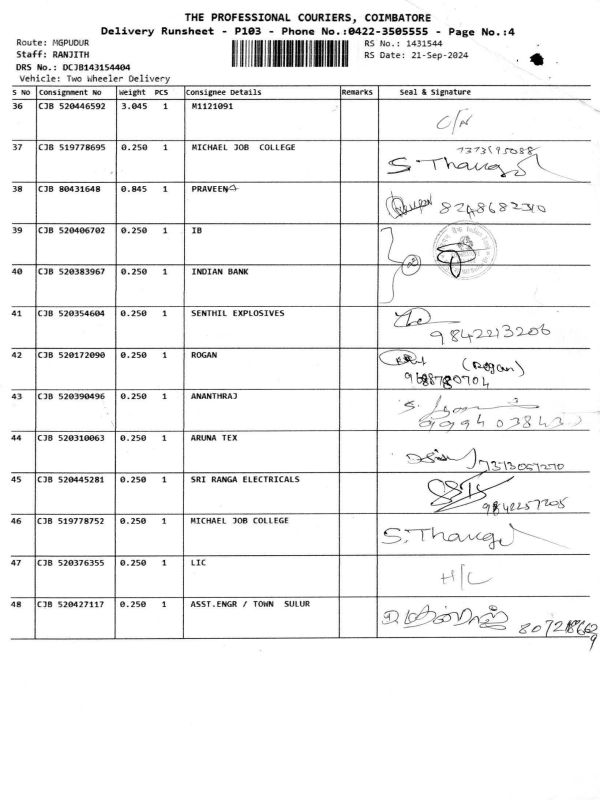 THE PROFESSIONAL COURIERS, COIMBATORE
Delivery Runsheet - P103 - Phone No.:0422-3505555 - Page No.:4
Route: MGPUDUR
RS No.: 1431544
Staff: RANJITH
RS Date: 21-Sep-2024
DRS No.: DCJB143154404
Vehicle: Two Wheeler Delivery
S No Consignment No Weight PCS Consignee Details Remarks Seal & Signature
36 CJB 520446592 3.045 1 M1121091
37 CJB 519778695 0.250 1 MICHAEL JOB COLLEGE
S. Thangj
38 CJB 80431648 0.845 1 PRAVEEN
8248682310
39 CJB 520406702 0.250 1 IB
40 CJB 520383967 0.250 1 INDIAN BANK
41 CJB 520354604 0.250 1 SENTHIL EXPLOSIVES
9842213206
42 CJB 520172090 0.250 1 ROGAN
(Rogan)
9688780704
43 CJB 520390496 0.250 1 ANANTHRAJ
44 CJB 520310063 0.250 1 ARUNA TEX
45 CJB 520445281 0.250 1 SRI RANGA ELECTRICALS
9842257205
46 CJB 519778752 0.250 1 MICHAEL JOB COLLEGE
S. Thangj
47 CJB 520376355 0.250 1 LIC
H/L
48 CJB 520427117 0.250 1 ASST.ENGR / TOWN SULUR